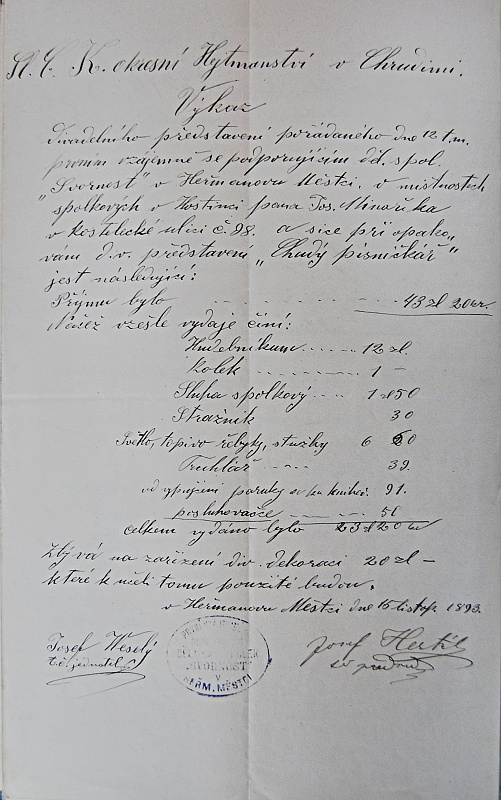 Sl. C. K. okresní Hejtmanství v Chrudimi.
Výkaz
divadelního představení pořádaného dne 12 t.m.
prvním vzájemně se podporujícím děl. spol.
"Svornost" v Heřmanovu Městci, v místnostech
spolkových v Hostinci pana Jos. Minaříka
v kostelecké ulici č. 98. a sice při opako„
vám d. v. představení „Chudý písničkář"
jest následující:
Příjmu bylo 43 zl 20 kr.
Načež vzešlé vydaje činí:
Hudebníkum 12 zl.
Kolek 1 –
Sluha spolkový 1 zl 50
Strážník 30
Světlo, topivo řebyky, stužky 6 20
Truhlář 39.
od vypujčení paruky 91.
posluhovačce 50
celkem vydáno bylo 23 zl 20 kr
Zbývá na zařízení div. dekorací 20 zl –
které k účeli tomu použité budou.
v Heřmanovu Městci dne 15 listop. 1893.
Josef Weselý
t.č. jednatel
Josef Hertík
SVORNOST
V
HEŘM. MĚSTCI